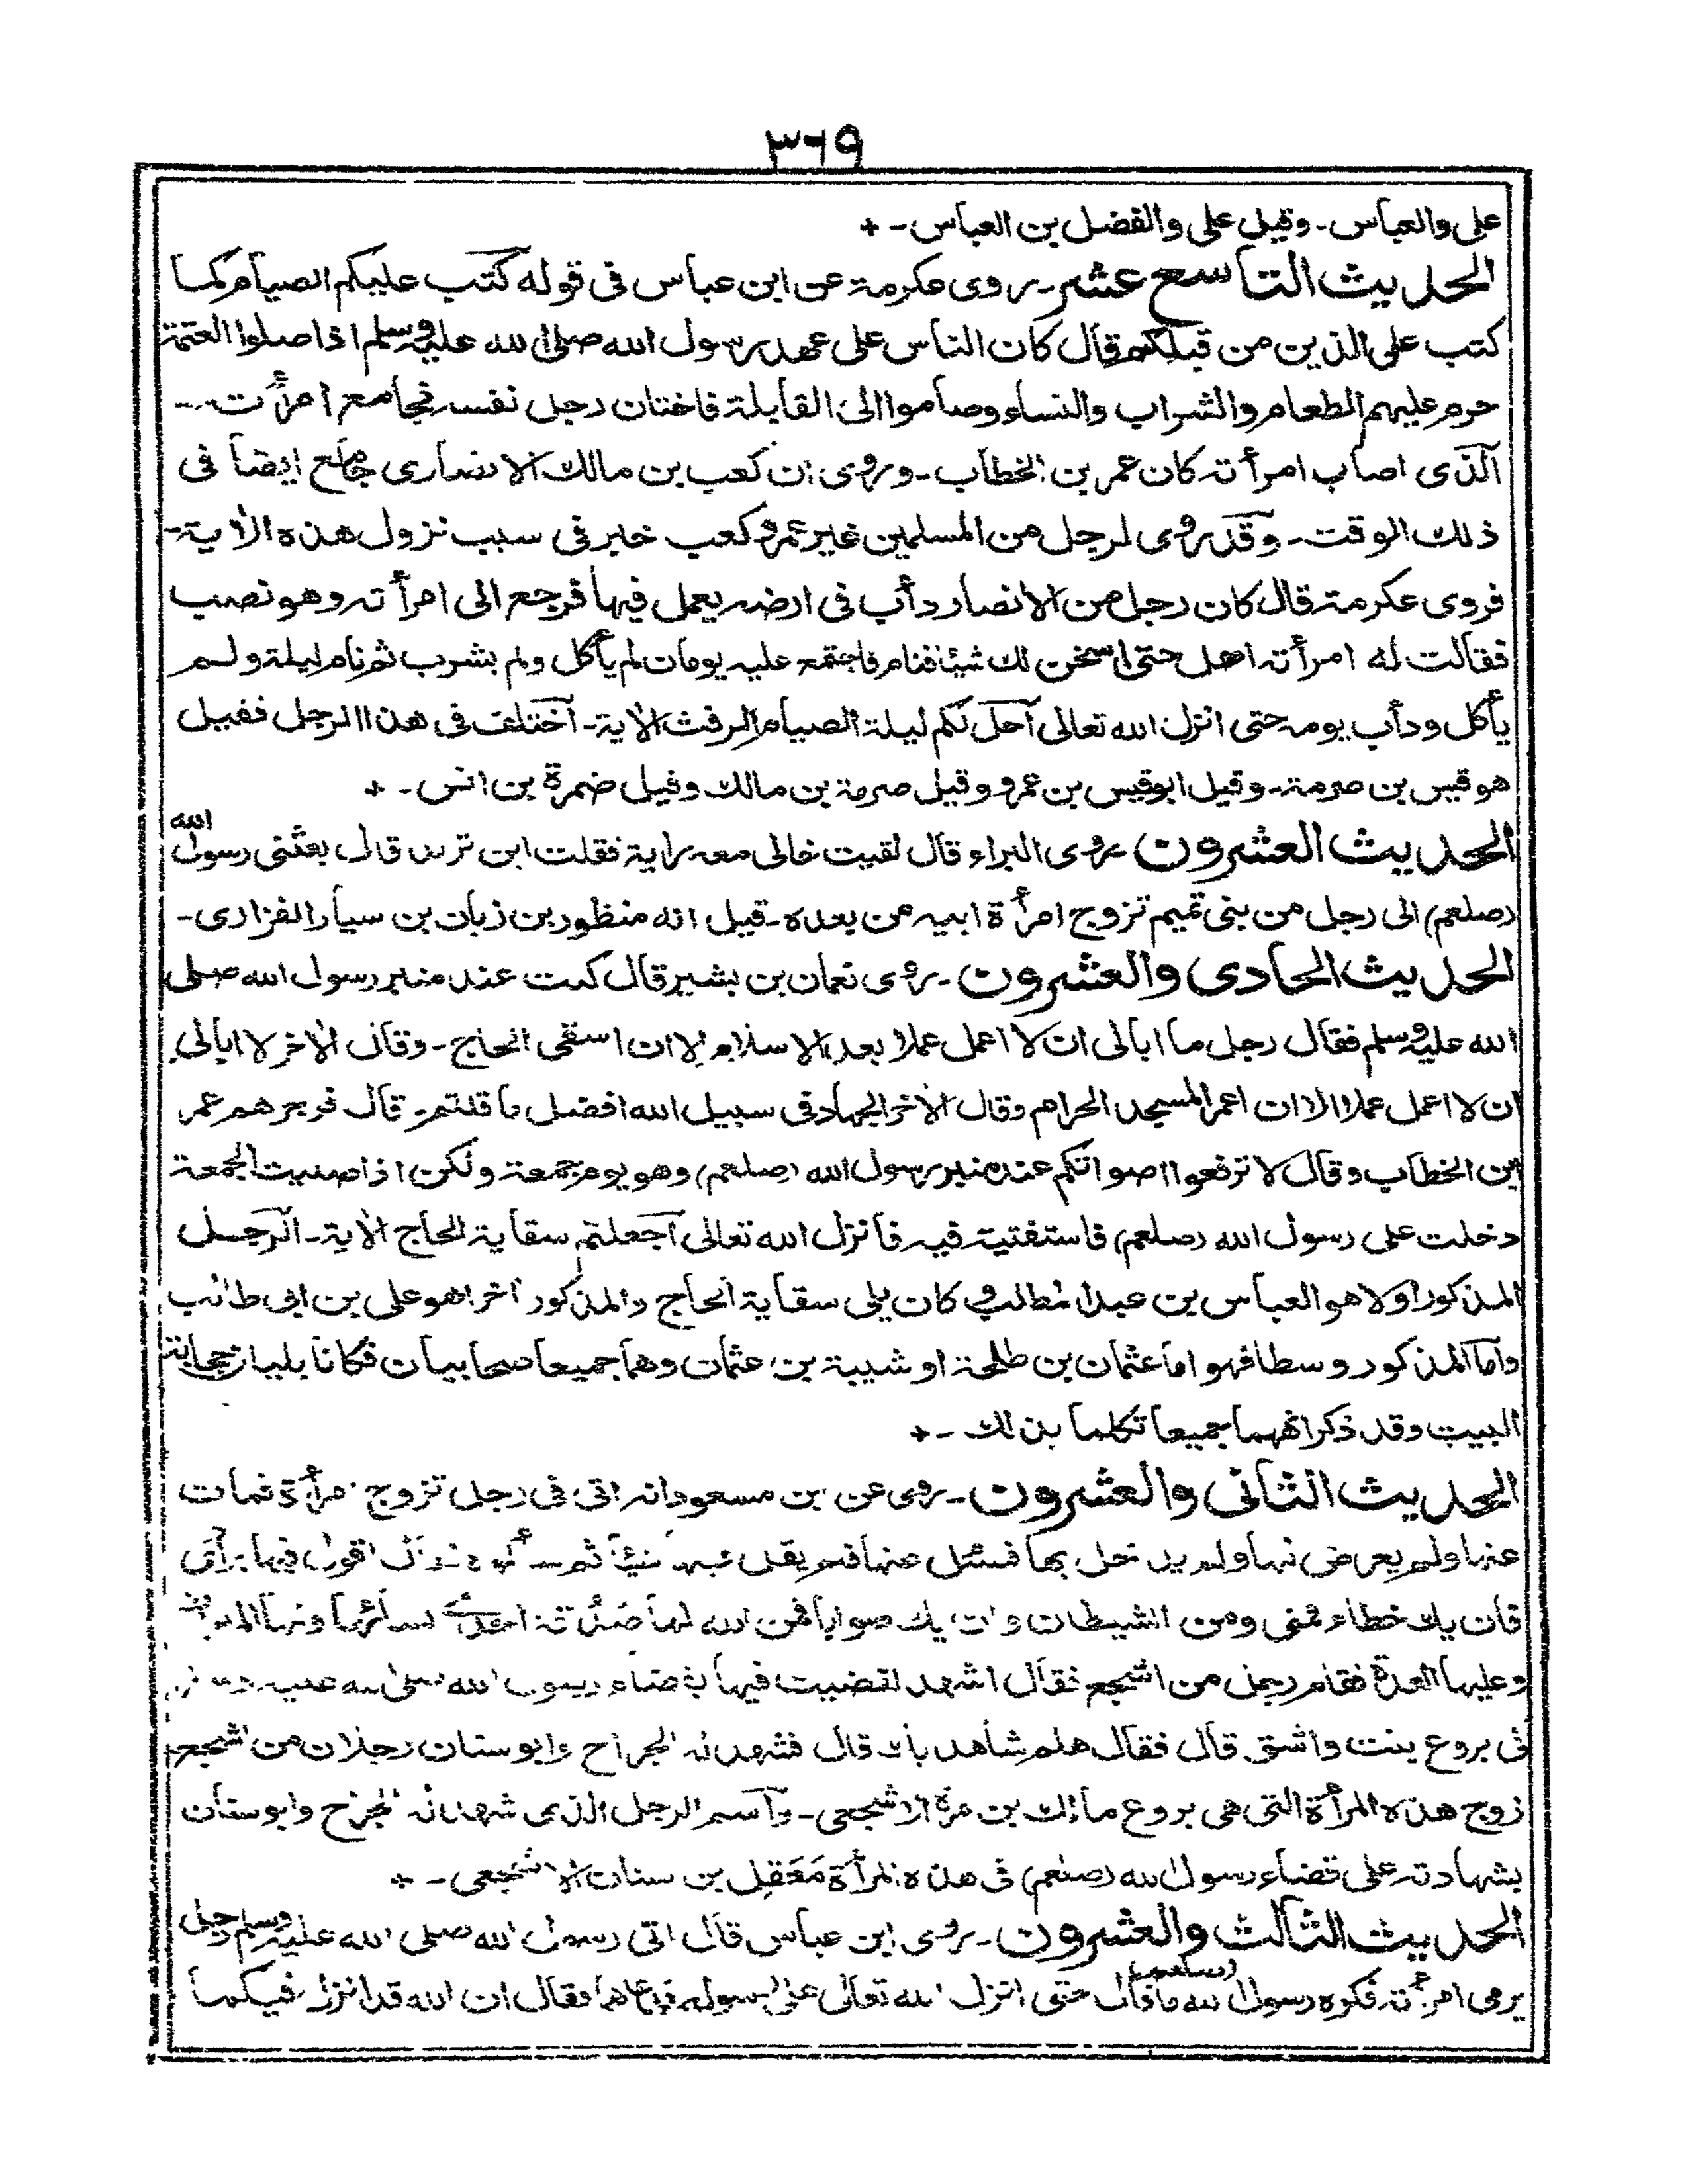 ٣٦٩
على والعباس - وقيل على والفضل بن العباس - +
الحديث التاسع عشر - روى عكرمة عن ابن عباس فى قوله كتب عليكم الصيام كما
كتب على الذين من قبلكم قال كان الناس على عهد رسول الله صلى الله عليه وسلم اذا صلوا العتمة
حرم عليهم الطعام والشراب والنساء وصاموا الى القابلة فاختان رجل نفسه فجامع امرأته -
الذى اصاب امرأته كان عمر بن الخطاب - وروى ان كعب بن مالك الانصارى جامع ايضا فى
ذلك الوقت - وقد روى لرجل من المسلمين غير عمر وكعب خبر فى سبب نزول هذه الاية -
فروى عكرمة قال كان رجل من الانصار دأب فى ارضه يعمل فيها فرجع الى امرأته وهو نصب
فقالت له امرأته امهل حتى اسخن لك شيئا فنام فاجتمع عليه يومان لم يأكل ولم يشرب ثم نام ليلة ولم
يأكل ودأب يومه حتى انزل الله تعالى احل لكم ليلة الصيام الرفث الاية - اختلف فى هذا الرجل فقيل
هو قيس بن صرمة - وقيل ابو قيس بن عمرو وقيل صرمة بن مالك وقيل ضمرة بن انس - +
الحديث العشرون روى البراء قال لقيت خالى معه راية فقلت اين تريد قال بعثنى رسول الله
(صلعم) الى رجل من بنى تميم تزوج امرأة ابيه من بعده - قيل انه منظور بن زبان بن سيار الفزارى -
الحديث الحادى والعشرون - روى نعمان بن بشير قال كنت عند منبر رسول الله صلى
الله عليه وسلم فقال رجل ما ابالى ان لا اعمل عملا بعد الاسلام الا ان اسقى الحاج - وقال الاخر لا ابالى
ان لا اعمل عملا الا ان اعمر المسجد الحرام وقال الاخر الجهاد فى سبيل الله افضل ما قلتم - قال فزجرهم عمر
بن الخطاب وقال لا ترفعوا اصواتكم عند منبر رسول الله (صلعم) وهو يوم جمعة ولكن اذا صليت الجمعة
دخلت على رسول الله (صلعم) فاستفتيته فيه فانزل الله تعالى اجعلتم سقاية الحاج الاية - الرجل
المذكور اولا هو العباس بن عبد المطلب وكان يلى سقاية الحاج والمذكور اخرا هو على بن ابى طالب
واما المذكور وسطا فهو اما عثمان بن طلحة او شيبة بن عثمان وهما جميعا صحابيان فكانا يليان حجابة
البيت وقد ذكر انهما جميعا تكلما بذلك - +
الحديث الثانى والعشرون - روى عن ابن مسعود انه اتى فى رجل تزوج امرأة فمات
عنها ولم يعرض لها ولم يدخل بها فسئل عنها فلم يقل فيها شيئا ثم اقول فيها برأى
فان يك خطاء فمنى ومن الشيطان وان يك صوابا فمن الله لها صدقة احدى نسائها ولها الميراث
وعليها العدة فقام رجل من اشجع فقال اشهد لقضيت فيها بقضاء رسول الله صلى الله عليه وسلم
فى بروع بنت واشق قال فقال هلم شاهد بك قال فشهد له الجراح وابو سنان رجلان من اشجع
زوج هذه المرأة التى هى بروع مالك بن مرة الاشجعى - واسم الرجل الذى شهد له الجراح وابو سنان
بشهادته على قضاء رسول الله (صلعم) فى هذه المرأة مَعقِل بن سنان الاشجعى - +
الحديث الثالث والعشرون - روى ابن عباس قال اتى رسول الله صلى الله عليه وسلم رجل
يرمى امرأته فكره رسول الله (صلعم) ما قال حتى انزل الله تعالى على رسوله فدعاهما فقال ان الله قد انزل فيكما